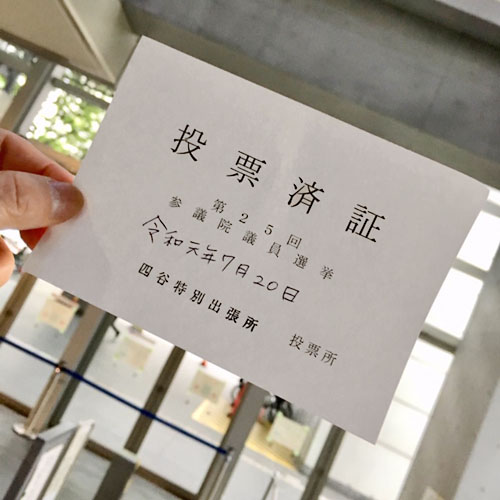 投票済証
第25回
参議院議員選挙
令和元年7月20日
四谷特別出張所 投票所